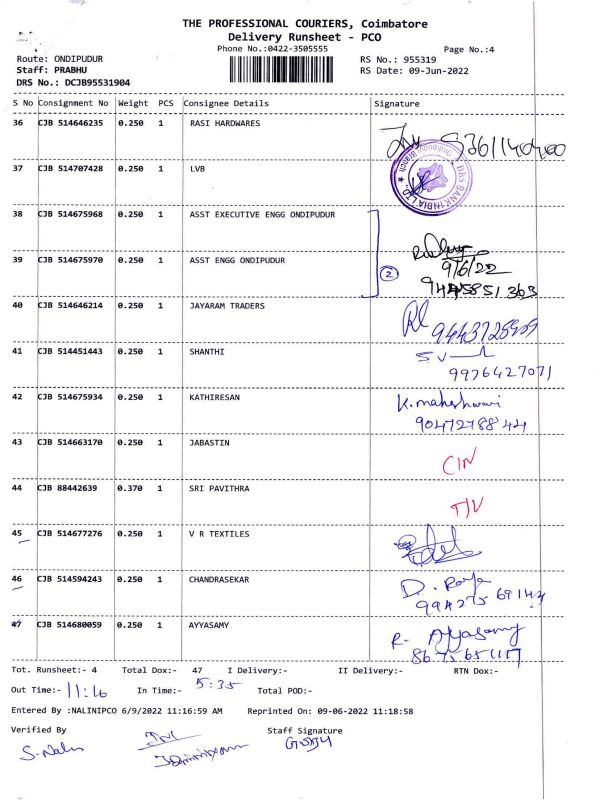 THE PROFESSIONAL COURIERS, Coimbatore
Delivery Runsheet - PCO
Phone No.:0422-3505555
Page No.:4
Route: ONDIPUDUR
RS No.: 955319
Staff: PRABHU
RS Date: 09-Jun-2022
DRS No.: DCJB95531904
S No Consignment No Weight PCS Consignee Details Signature
36 CJB 514646235 0.250 1 RASI HARDWARES
37 CJB 514707428 0.250 1 LVB
DBS BANK INDIA LTD. Ondipudur Branch
38 CJB 514675968 0.250 1 ASST EXECUTIVE ENGG ONDIPUDUR
39 CJB 514675970 0.250 1 ASST ENGG ONDIPUDUR
2
9/6/22
40 CJB 514646214 0.250 1 JAYARAM TRADERS
41 CJB 514451443 0.250 1 SHANTHI
9976427071
42 CJB 514675934 0.250 1 KATHIRESAN K. maheshwari
43 CJB 514663170 0.250 1 JABASTIN
44 CJB 88442639 0.370 1 SRI PAVITHRA
45 CJB 514677276 0.250 1 V R TEXTILES
46 CJB 514594243 0.250 1 CHANDRASEKAR D. Raja
47 CJB 514680059 0.250 1 AYYASAMY R. Ayyasamy
Tot. Runsheet:- 4 Total Dox:- 47 I Delivery:- II Delivery:- RTN Dox:-
Out Time:- 11:16 In Time:- 5:35 Total POD:-
Entered By :NALINIPCO 6/9/2022 11:16:59 AM Reprinted On: 09-06-2022 11:18:58
Verified By Staff Signature
S. Nalin